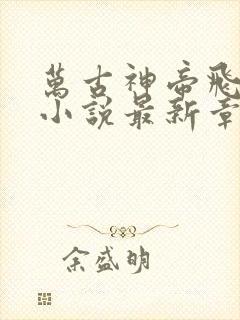 萬古神帝飛
小說最新章
余盛明